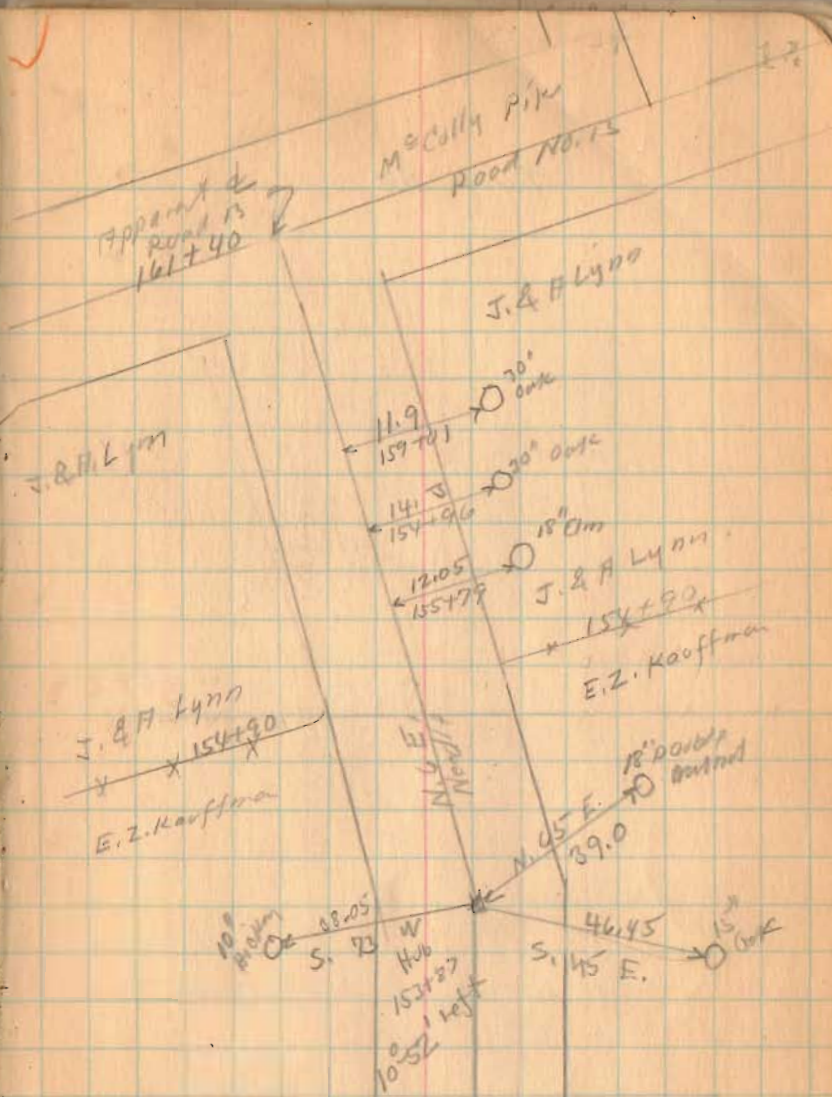 McColly Pike
Road No. 13
Apparent ⅊
Road 13
161+40
J. & A Lynn
30" Oak
11.9
159+41
J. & A. Lynn
20" Oak
14.
18" Elm
12.05
155+79
J. & A Lynn.
154+90
E.Z. Kauffman
J. & A Lynn
154+90
E.Z. Kauffman
N E.
North
18" Double
N. 65 E.
39.0
10" Hickory
38.05
S. 73 W
Hub
153+87
10°52' left
46.45
S. 45 E.
15" Oak